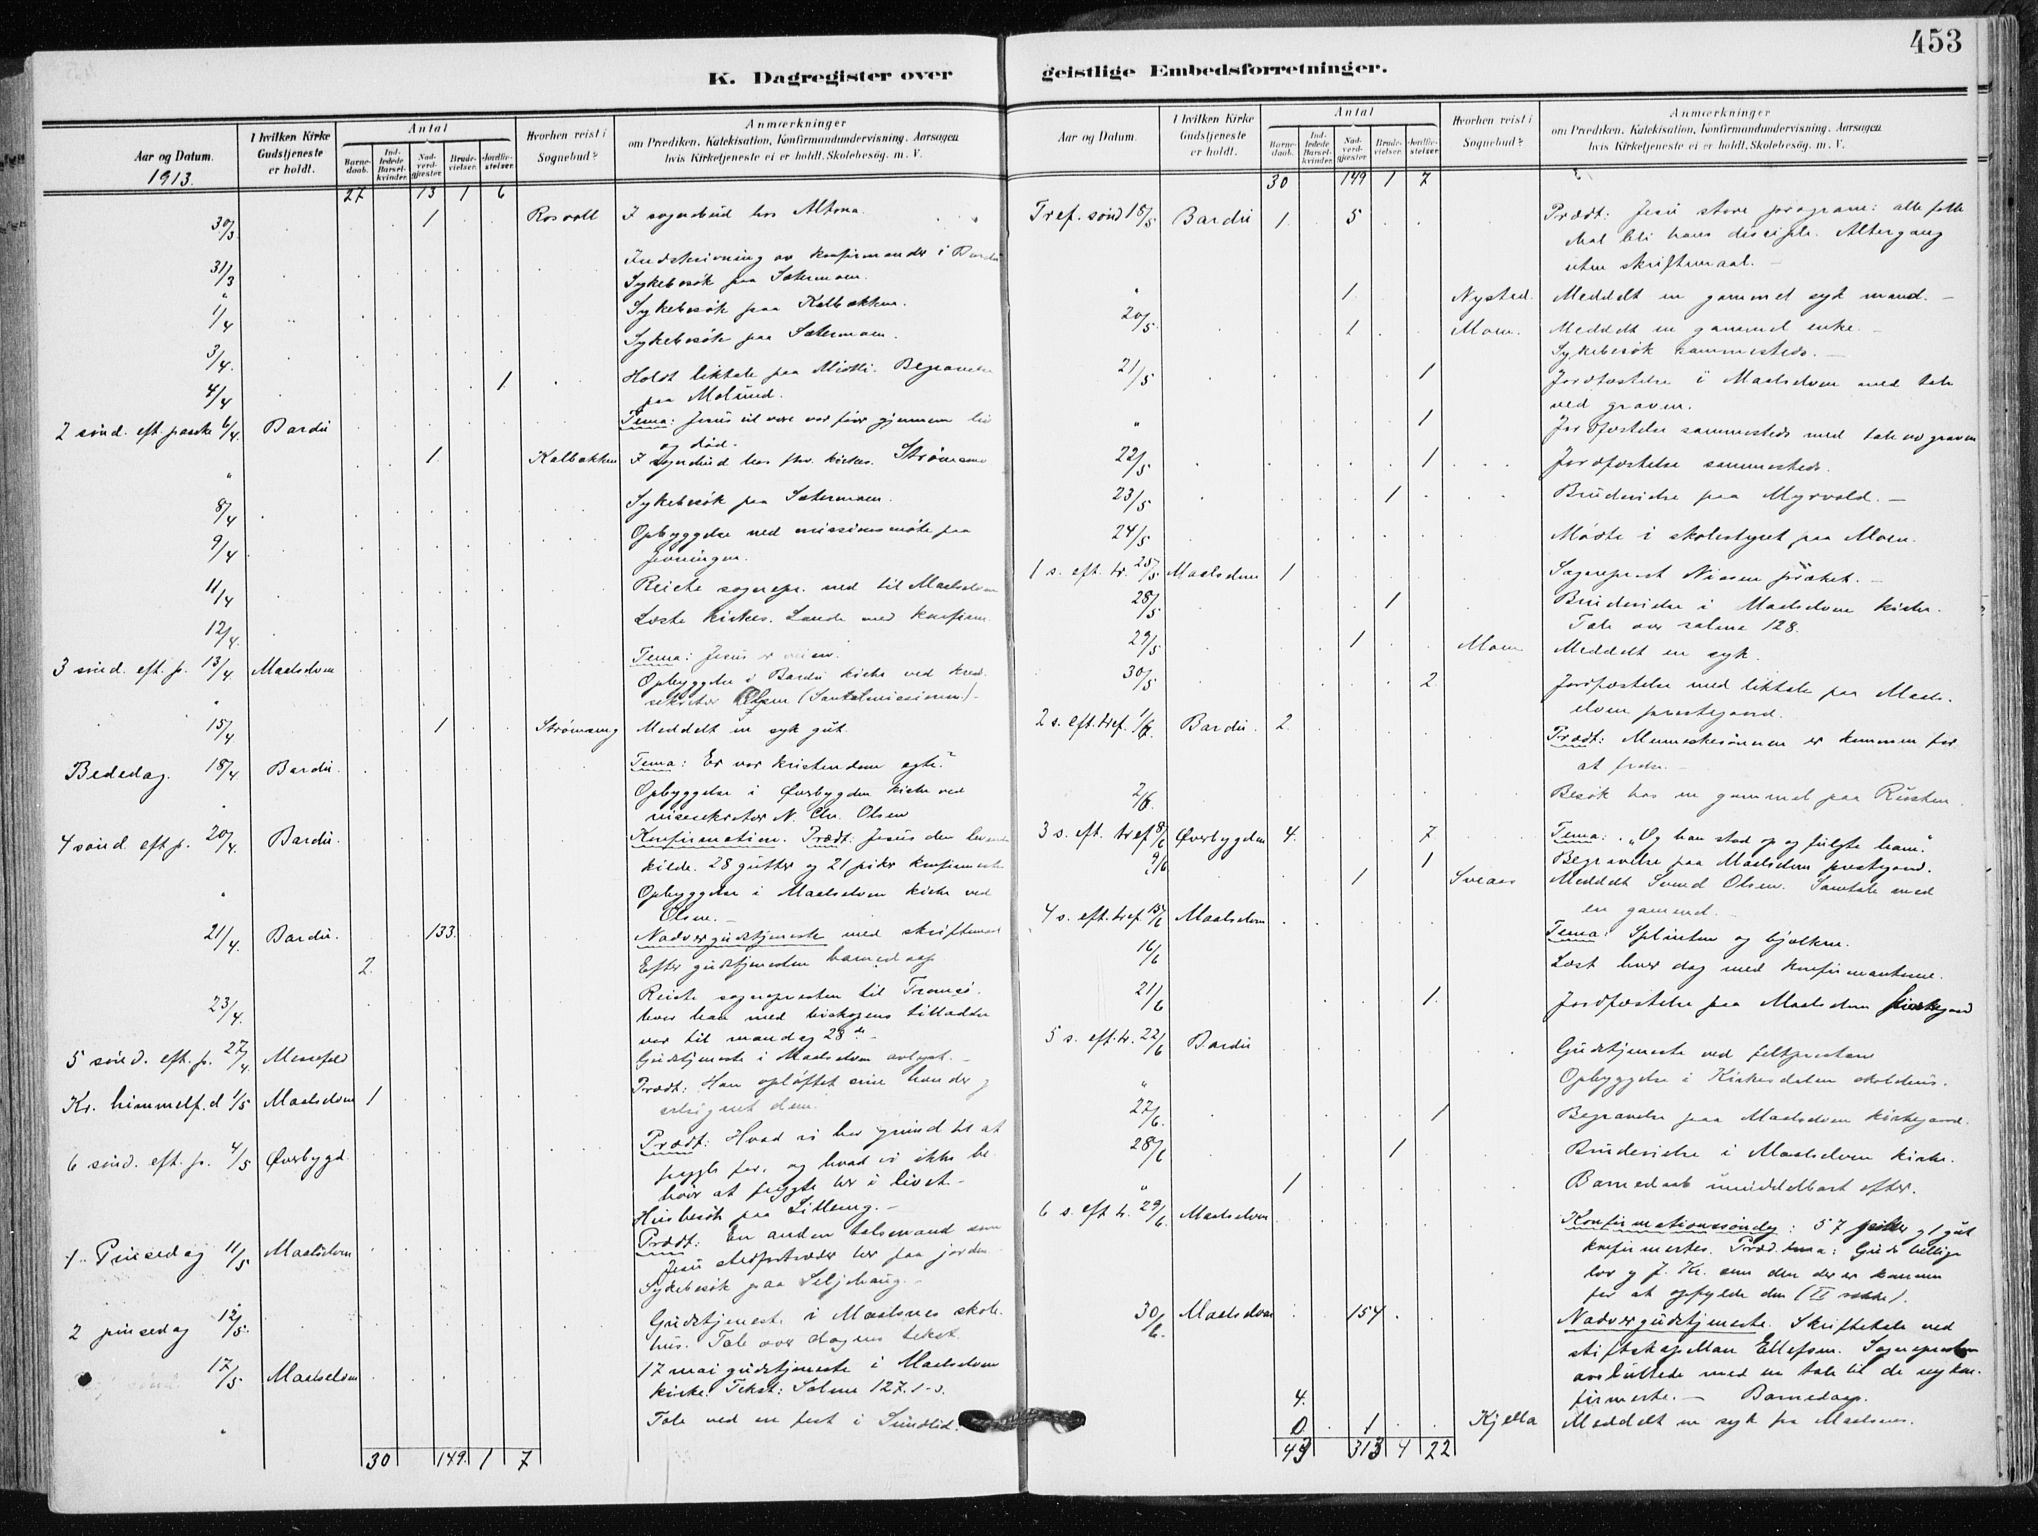 453
K. Dagregister over
Aar og Datum.
1913.
I hvilken Kirke Gudstjeneste er holdt.
Antal
Barne-daab.
Ind-ledede Barsel-kvinder.
Nad-verd-gjæster
Brude-vielser.
Jordfæ-stelser.
Hvorhen reist i Sognebud?
Anmærkninger
om Prædiken, Katekisation, Konfirmandundervisning, Aarsagen
hvis Kirketjeneste ei er holdt. Skolebesøg. m. V.
27 13 1 6
30/3 1 Rosvoll I sognebud hos Altona.
31/3 Indskrivning av konfirmander i Bardu
" Sykebesök paa Sætermoen.
1/4 Sykebesök paa Kalbækken.
3/4 Sykebesök paa Sætermoen.
4/4 1 Holdt liktale paa Midtli. Begravelse
paa Molund.
2 sönd. eft. paaske 6/4 Bardu Tema: Jesus vil være vor förer gjennem liv
og död.
" 1 Kalbækken I sognebud hos fhv. kirkes. Strömseng
8/4 Sykebesök paa Sætermoen.
9/4 Opbyggelse ved missionsmöte paa
11/4 Reiste sognepr. ned til Maalselven
12/4 Læste kirkes. Lande med konfirm.
3 sönd. eft. p. 13/4 Maalselven Tema: Jesus er veien.
" Opbyggelse i Bardu kirke ved kred.
sekretær Olsen (Santalmissionen).
15/4 1 Strömseng Meddelt en syk gut.
Bededag. 18/4 Bardu. Tema: Er vor kristendom ægte?
" Opbyggelse i Överbygden kirke ved
N. Chr. Olsen
4 sönd eft p. 20/4. Bardu. Konfirmation. Prædt: Jesus den levende
kilde. 28 gutter og 21 piker konfirmerte
" Opbyggelse i Maalselven kirke ved
Olsen.
21/4. Bardu. 133. Nadvergudstjeneste med skriftemaal
2. Efter gudstjenesten barnedaap
23/4. Reiste sognepresten til Tromsö.
hvor han med biskopens tilladelse
var til mandag 28de
5 sönd. eft. p. 27/4. Messefald Gudstjeneste i Maalselven avlyst.
Kr. himmelf.d 1/5 Maalselven 1 Prædt: Han oplöftet sine hænder og
velsignet dem.
6 sönd. eft. p. 4/5 Överbygd. Prædt: Hvad vi har grund til at
frygte for, og hvad vi ikke be-
höver at frygte her i livet.
Husbesök paa
1. Pinsedag 11/5 Maalselven Prædt: En anden talsmand som
Jesu stedfortræder her paa jorden
Sykebesök paa Seljehaug.
2 pinsedag 12/5. Gudstjeneste i Maalsnes skole-
hus. Tale over dagens tekst.
17/5 Maalselven 17 mai gudstjeneste i Maalselven
kirke. Tekst: Salme 127.1-3.
" Tale ved en fest i Sundlid.
30 149. 1 7
geistlige Embedsforretninger.
Aar og Datum.
I hvilken Kirke Gudstjeneste er holdt.
Antal
Barne-daab.
Ind-ledede Barsel-kvinder.
Nad-verd-gjæster
Brude-vielser.
Jordfæ-stelser.
Hvorhen reist i Sognebud?
Anmærkninger
om Prædiken, Katekisation, Konfirmandundervisning, Aarsagen
hvis Kirketjeneste ei er holdt. Skolebesøg. m. V.
30 149 1 7
Tref. sönd 18/5 Bardu 1. 5 Prædt: Jesu store program: alle folk
skal bli hans disciple. Altergang
uten skriftemaal.
" 1 Nystad. Meddelt en gammel syk mand.
20/5. 1 Moen. Meddelt en gammel enke.
Sykebesök sammesteds.
21/5 1 Jordfæstelse i Maalselven med tale
ved graven.
" 1 Jordfæstelse sammesteds med tale ved graven
22/5 1 Jordfæstelse sammesteds.
23/5 1 Brudevielse paa Myrvold.
24/5 Mödte i skolestyret paa Moen.
1 s. eft. tr. 25/5 Maalselven 1 Sogneprest Nissen præket.
28/5 1 Brudevielse i Maalselven kirke.
Tale over salme 128.
29/5 1 Moen Meddelt en syk.
30/5 2 Jordfæstelse med liktale paa Maals-
elven prestegaard.
2 s. eft. tref. 1/6. Bardu. 2. Prædt: Menneskesönnen er kommen for
at frelse.
2/6. Besök hos en gammel paa Rusten.
3 s. eft. tref 8/6 Överbygden 4. 7 Tema: "Og han stod op og fulgte ham."
9/6 1 Begravelse paa Maalselven prestegaard.
1 Sveaas Meddelt Svend Olsen. Samtale med
en gammel.
4 s. eft. tref. 15/6 Maalselven Tema: Splinten og bjælken.
16/6 Læst hver dag med konfirmanterne.
21/6 1. Jordfæstelse paa Maalselven kirkegaard
5 s. eft. tr. 22/6 Bardu Gudstjeneste ved feltpresten
" Opbyggelse i Kirkesdalen skolehus.
27/6. 1 Begravelse paa Maalselven kirkegaard.
28/6 1 Brudevielse i Maalselven kirke.
" 1 Barnedaab umiddelbart efter.
6 s. eft tr. 29/6. Maalselven Konfirmationssöndag: 57 piker og 1 gut
konfirmertes. Præd. tema: Guds hellige
lov og J. Kr. som den der er kommen
for at opfylde den (II række).
30/6. Maalselven 154 Nadvergudstjeneste. Skriftetale ved
stiftskapellan Ellefsen. Sognepresten
avsluttede med en tale til de nykon-
firmerte. 4. Barnedaap.
0 1 Kjella Meddelt en syk paa Maalsnes.
43 313 4 22